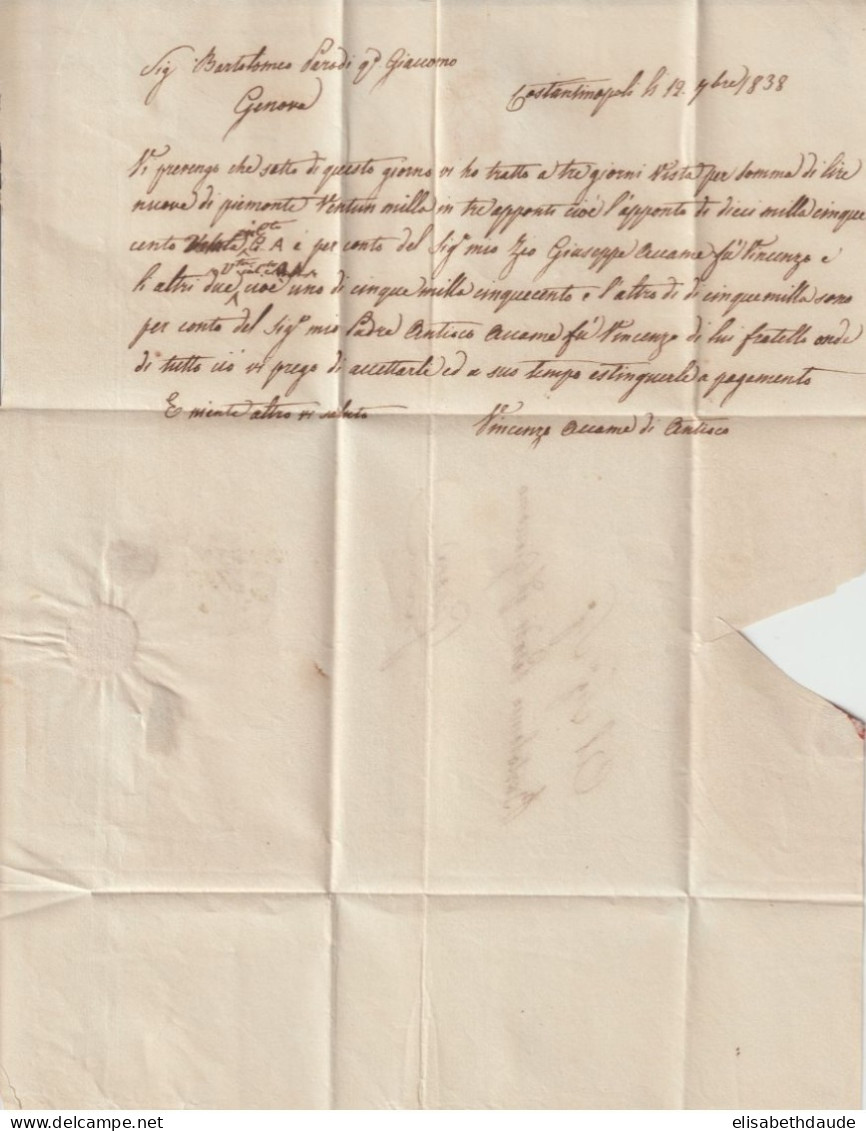 Sig.r Bartolomeo Parodi q.m Giacomo
Genova
Costantinopoli li 12. 7bre 1838
Vi prevengo che sotto di questo giorno vi ho tratto a tre giorni Vista per Somma di lire
nuove di piemonte Ventun milla in tre apponti cioè l'apponto di dieci milla cinque
cento A è per conto del Sig.r mio Zio Giuseppe Accame fù Vincenzo e
li altri due cioè uno di cinque milla cinquecento e l'altro di di cinque milla sono
per conto del Sig.r mio Padre Antioco Accame fù Vincenzo di lui fratello onde
di tutto ciò vi prego di accettarle ed a suo tempo estinguerle a pagamento
E niente altro vi saluto
Vincenzo Accame di Antioco
elisabethdaude